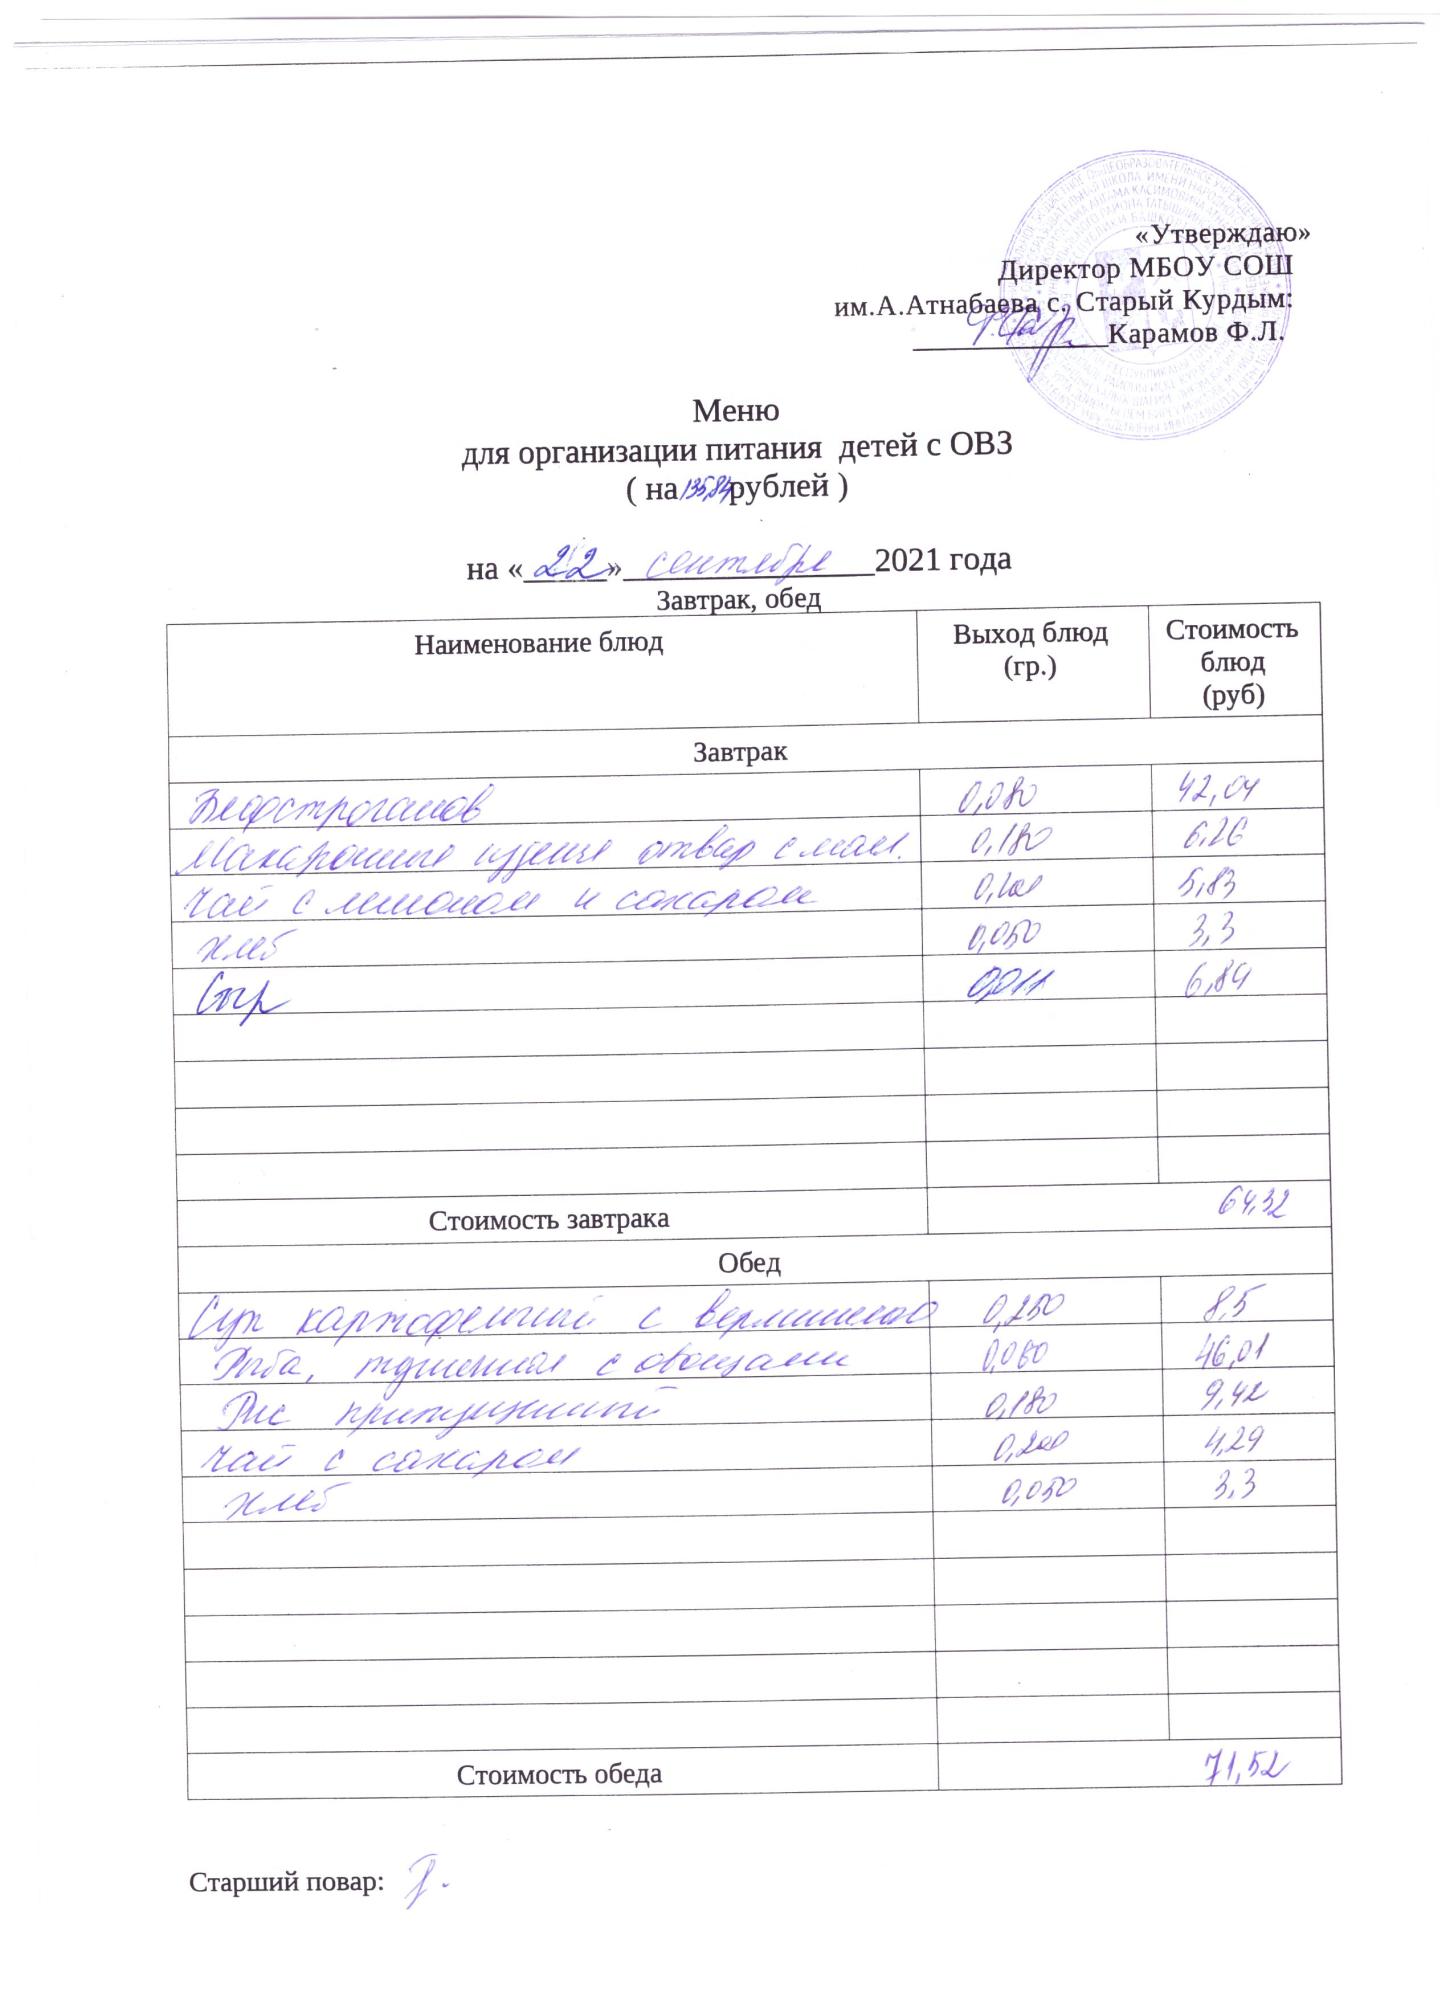 «Утверждаю»
Директор МБОУ СОШ
им.А.Атнабаева с. Старый Курдым:
Карамов Ф.Л.
Меню
для организации питания детей с ОВЗ
( на 135,84 рублей )
на «22» сентября 2021 года
Завтрак, обед
Наименование блюд Выход блюд (гр.) Стоимость блюд (руб)
Завтрак
Бефстроганов 0,080 42,04
Макаронные изделия отвар с мал. 0,180 6,26
Чай с лимоном и сахаром 0,200 5,83
Хлеб 0,050 3,3
Сыр 0,011 6,89
Стоимость завтрака 64,32
Обед
Суп картофельный с вермишелью 0,250 8,5
Рыба, тушенная с овощами 0,080 46,01
Рис припущенный 0,180 9,42
Чай с сахаром 0,200 4,29
Хлеб 0,050 3,3
Стоимость обеда 71,52
Старший повар: